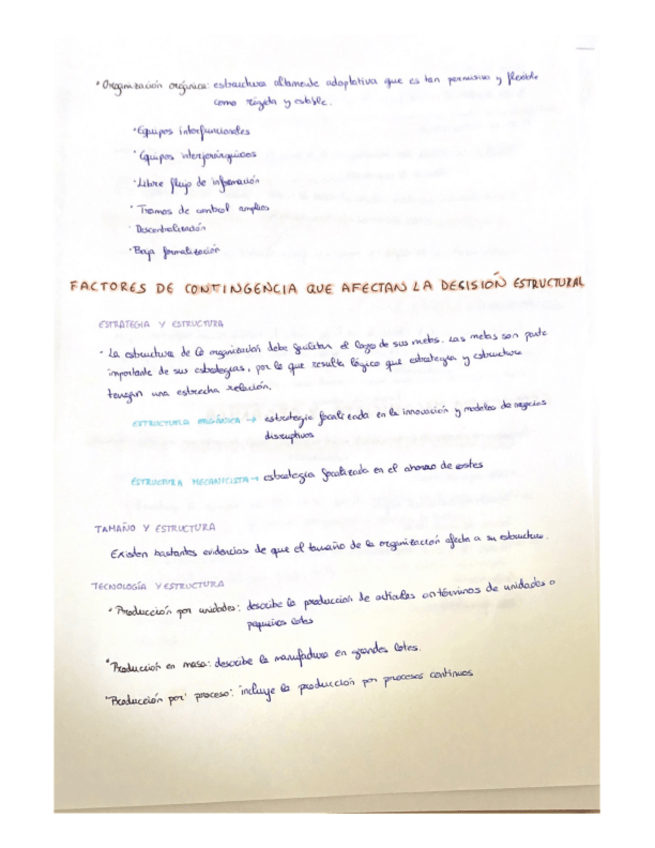 • Organización orgánica: estructura altamente adaptativa que es tan permisivo y flexible
como rígida y estable.
• Equipos interfuncionales
• Equipos interjerárquicos
• Libre flujo de información
• Tramos de control amplios
• Descentralización
• Baja formalización
FACTORES DE CONTINGENCIA QUE AFECTAN LA DECISIÓN ESTRUCTURAL
ESTRATEGIA Y ESTRUCTURA
• La estructura de la organización debe facilitar el logro de sus metas. Las metas son parte
importante de sus estrategias, por lo que resulta lógico que estrategia y estructura
tengan una estrecha relación.
ESTRUCTURA ORGÁNICA → estrategia focalizada en la innovación y modelos de negocios
disruptivos
ESTRUCTURA MECANICISTA → estrategia focalizada en el ahorro de costes
TAMAÑO Y ESTRUCTURA
Existen bastantes evidencias de que el tamaño de la organización afecta a su estructura.
TECNOLOGÍA Y ESTRUCTURA
• Producción por unidades: describe la producción de artículos en términos de unidades o
pequeños lotes
• Producción en masa: describe la manufactura en grandes lotes.
• Producción por proceso: incluye la producción por procesos continuos